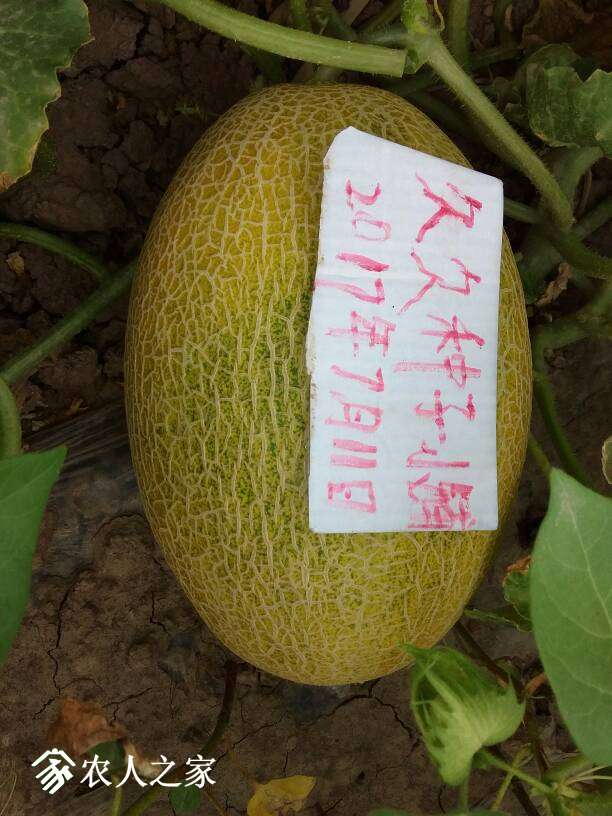 久久种子小陈
2017年7月11日
农人之家